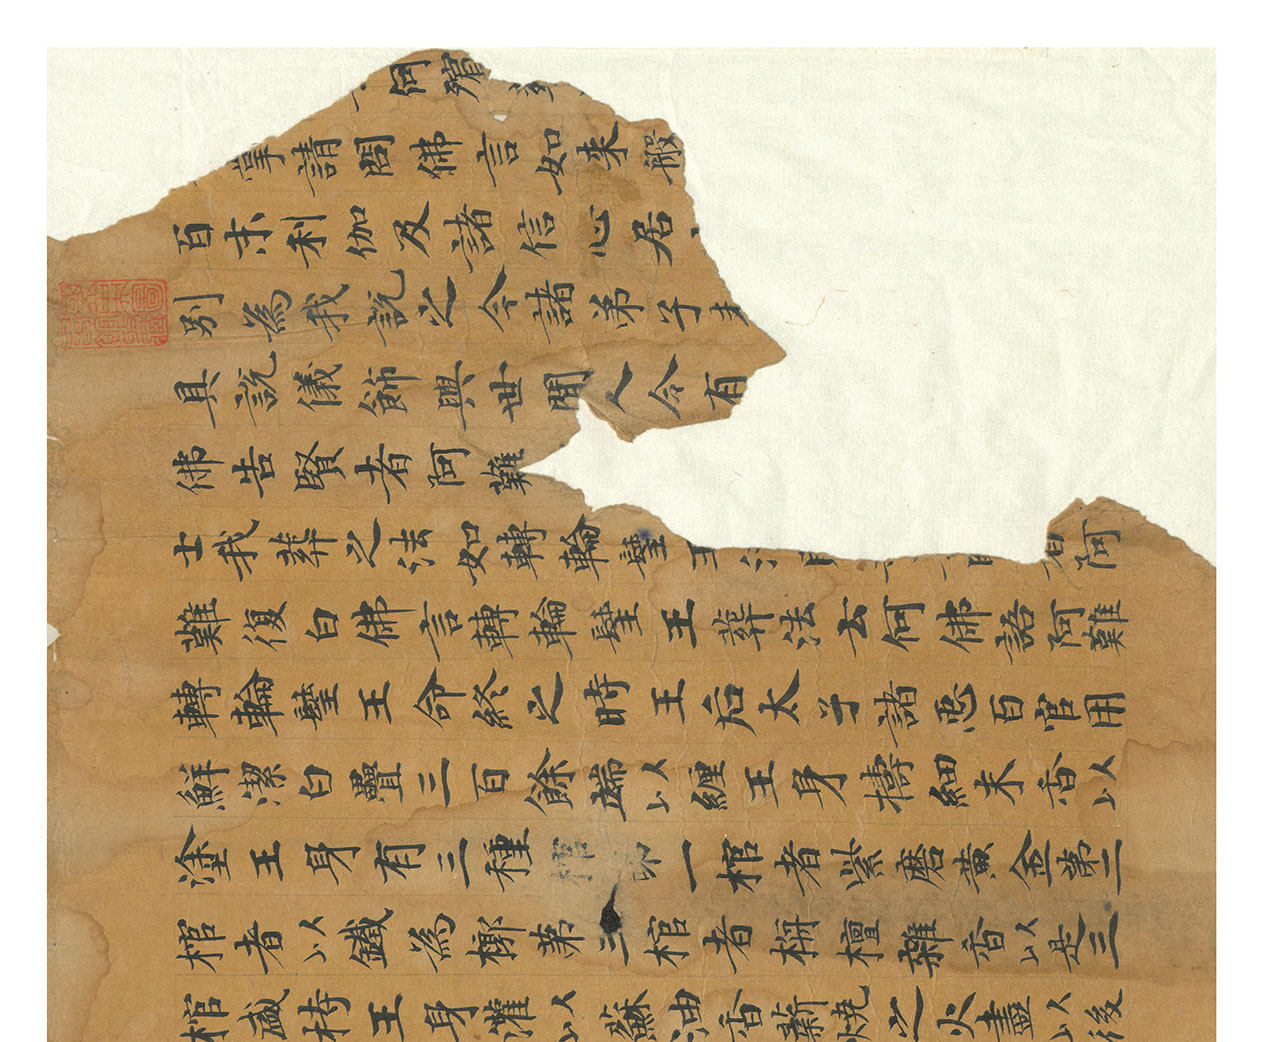 何殯
掌請問佛言如来般
百朩利伽及諸信心居
別為我說之令諸弟子
具說儀飾與世間人令有
佛告賢者阿難
士我葬之法如轉輪聖王阿
難復白佛言轉輪聖王葬法云何佛語阿難
轉輪聖王命終之時王后太子諸惡百官用
鮮潔白疊三百餘端以纏王身擣細末香以
塗王身有三種棺第一棺者紫磨黃金第二
棺者以鐵為槨第三棺者栴檀雜香以是三
棺盛持王身灌以蘇油香薪燒之火盡以後